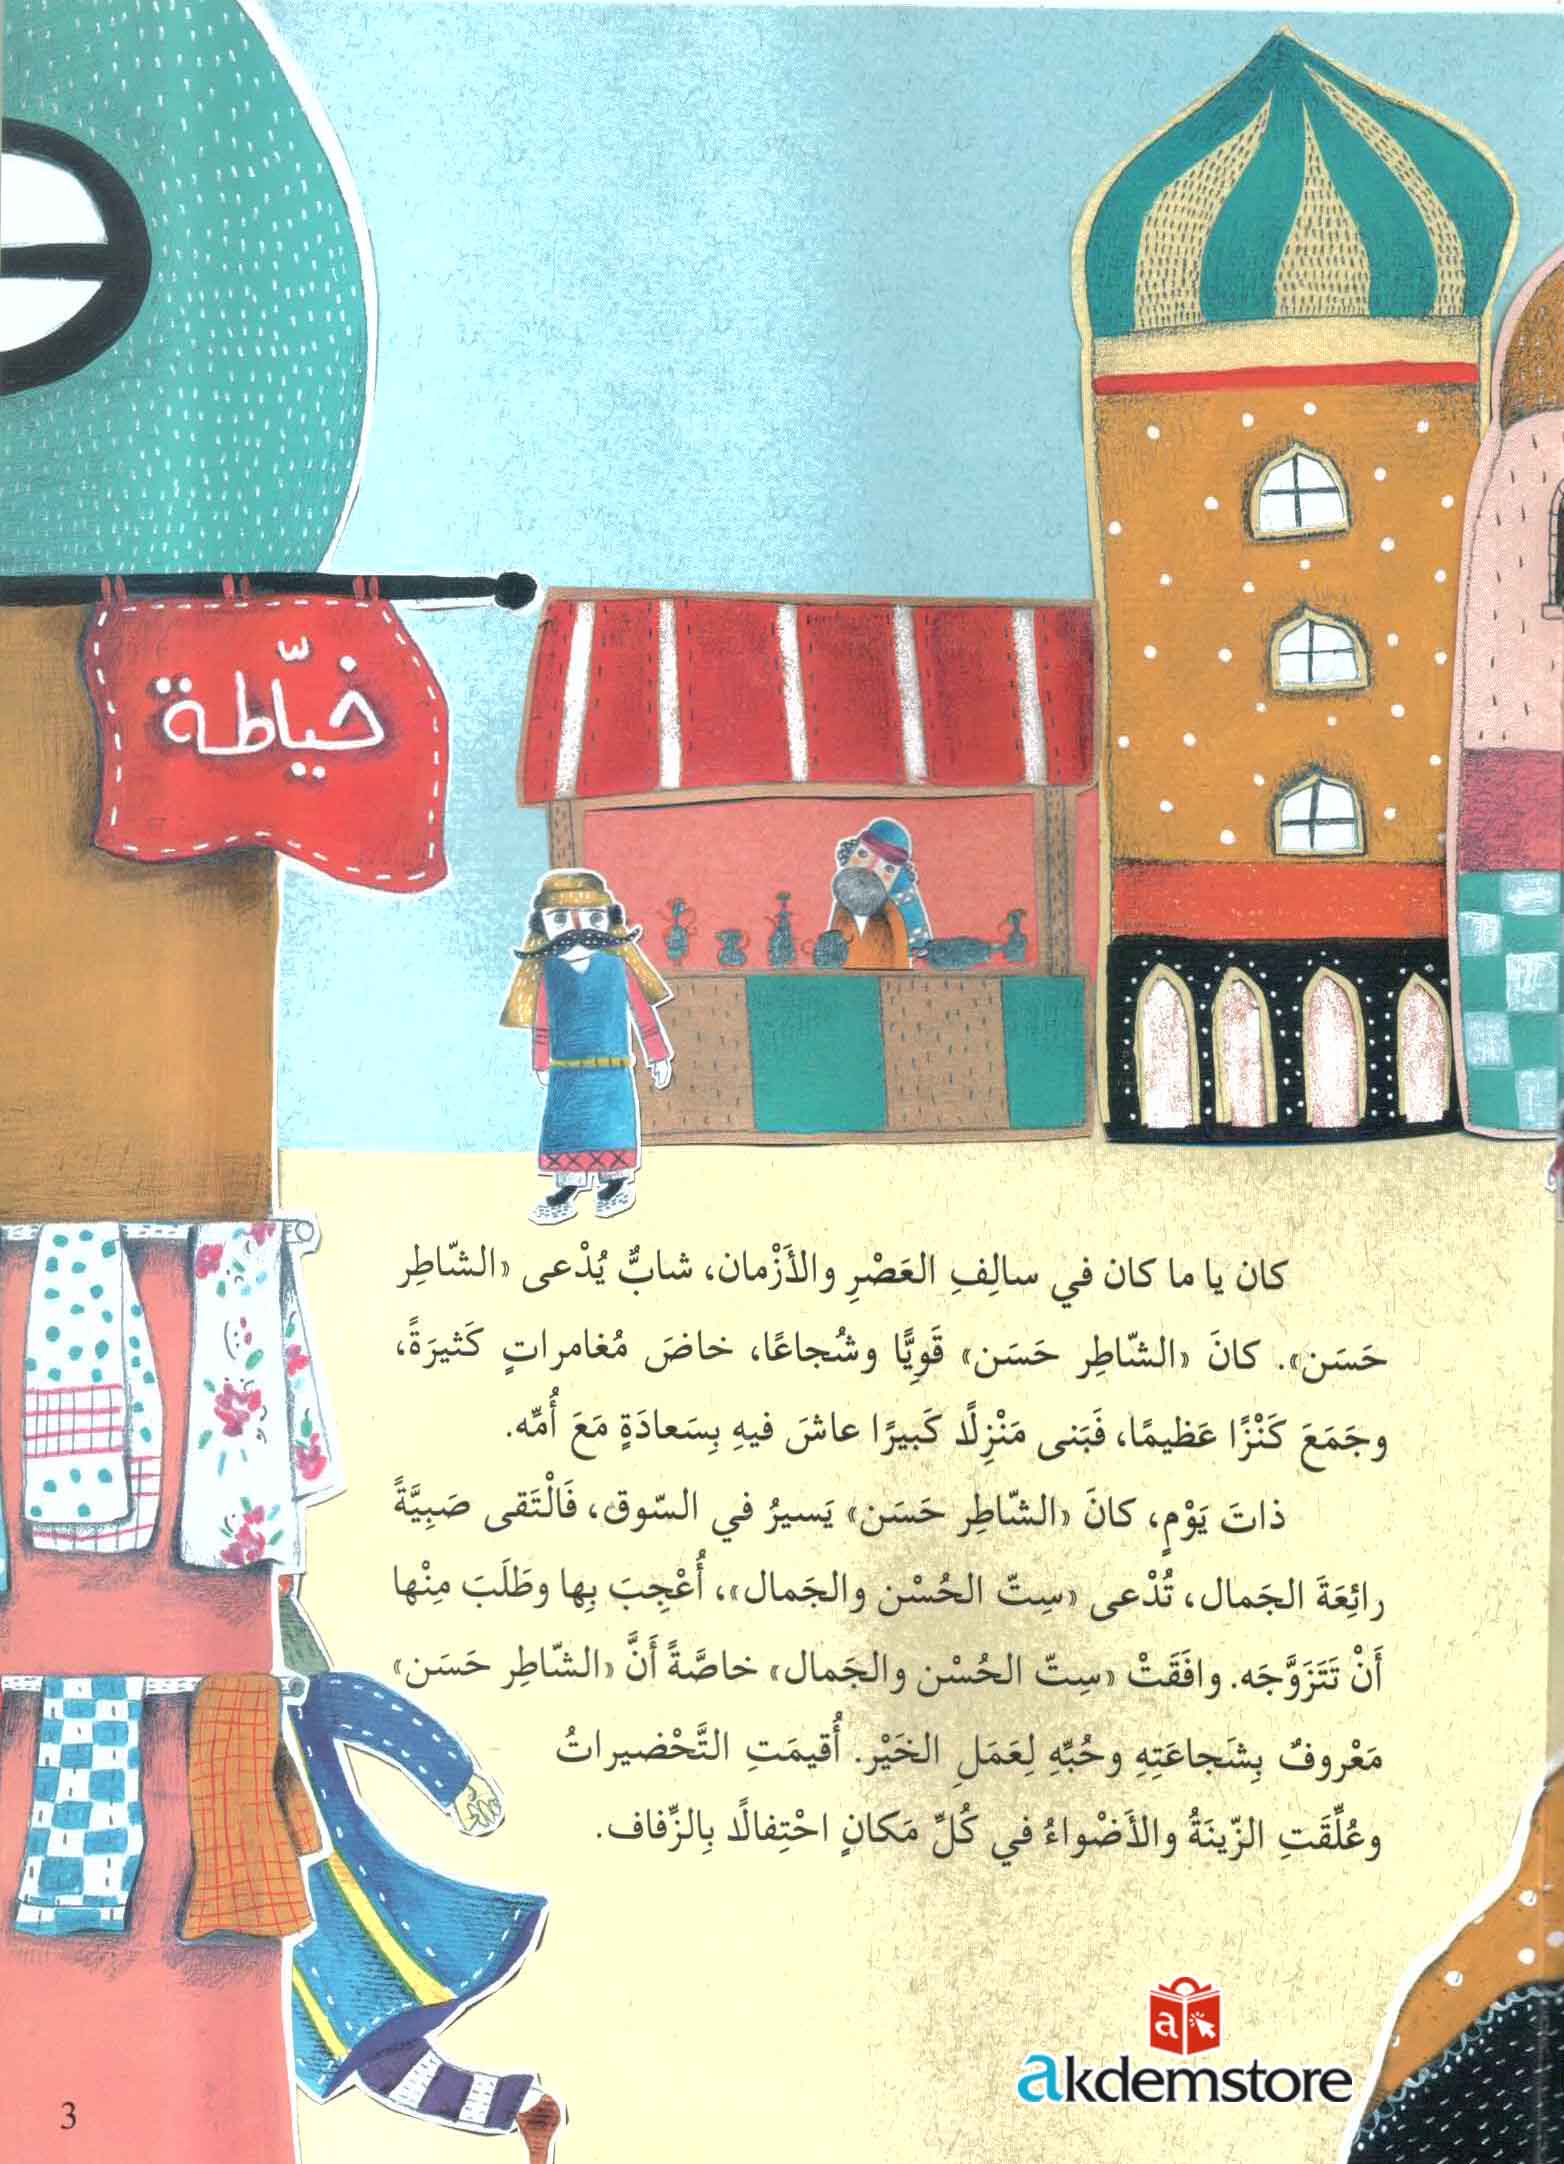 خيّاطة
كان يا ما كان في سالِفِ العَصْرِ والأَزْمان، شابٌّ يُدْعى «الشّاطِر
حَسَن». كانَ «الشّاطِر حَسَن» قَوِيًّا وشُجاعًا، خاضَ مُغامراتٍ كَثيرَةً،
وجَمَعَ كَنْزًا عَظيمًا، فَبَنى مَنْزِلًا كَبيرًا عاشَ فيهِ بِسَعادَةٍ مَعَ أُمِّه.
ذاتَ يَوْمٍ، كانَ «الشّاطِر حَسَن» يَسيرُ في السّوق، فَالْتَقى صَبِيَّةً
رائِعَةَ الجَمال، تُدْعى «سِتّ الحُسْن والجَمال»، أُعْجِبَ بِها وطَلَبَ مِنْها
أَنْ تَتَزَوَّجَه. وافَقَتْ «سِتّ الحُسْن والجَمال» خاصَّةً أَنَّ «الشّاطِر حَسَن»
مَعْروفٌ بِشَجاعَتِهِ وحُبِّهِ لِعَمَلِ الخَيْر. أُقيمَتِ التَّحْضيراتُ
وعُلِّقَتِ الزّينَةُ والأَضْواءُ في كُلِّ مَكانٍ احْتِفالًا بِالزِّفاف.
a
akdemstore
3